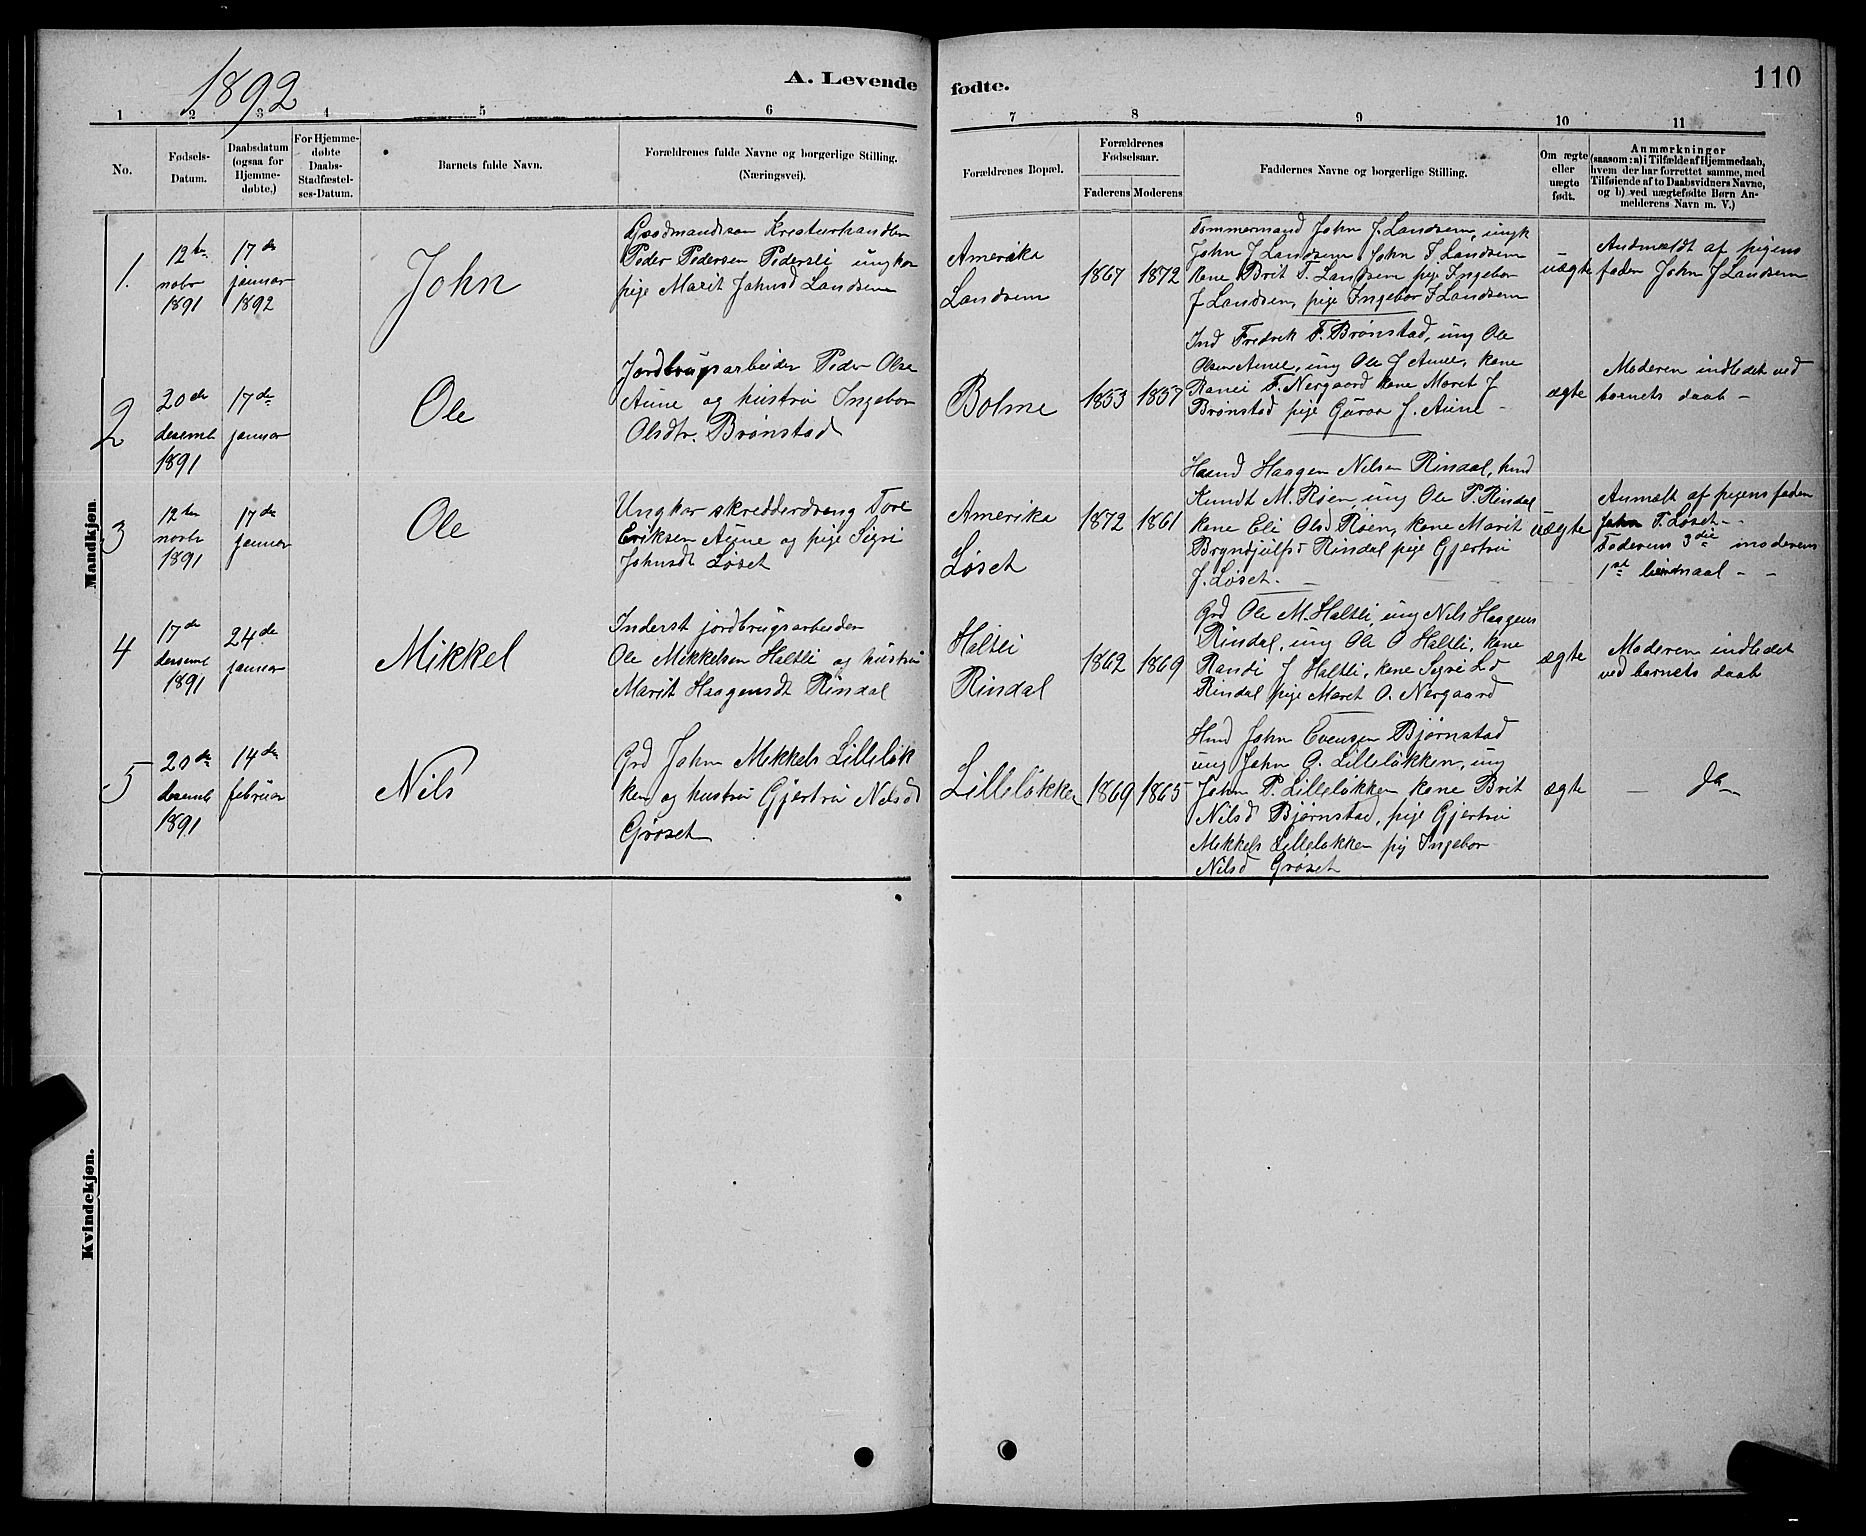 1892
A. Levende
fødte.
110
1 2 3 4 5 6 7 8 9 10 11
No.
Fødsels-
Datum.
Daabsdatum
(ogsaa for
Hjemme-
døbte,)
For Hjemme-
døbte
Daabs-
Stadfæstel-
ses-Datum.
Barnets fulde Navn.
Forældrenes fulde Navne og borgerlige Stilling.
(Næringsvei).
Forældrenes Bopæl.
Forældrenes
Fødselsaar.
Faderens Moderens
Faddernes Navne og borgerlige Stilling.
Om ægte
eller
uægte
født.
Anmærkninger
(saasom: a) i Tilfælde af Hjemmedaab,
hvem der har forrettet samme, med
Tilføiende af to Daabsvidners Navne,
og b) ved uægtefødte Børn An-
melderens Navn m. V.)
Mandkjøn.
1.
12te
nobr
1891
17de
januar
1892
John
Gaardmandssøn Kreaturhandler
Peder Pedersen Pedersli ungkar
pige Marit Johnsd Landsem
Amerika
Landsem
1867 1872
Tømmermand John J. Landsem, ungk
John J Landsem John T Landsem
kone Brit T. Landsem pige Ingebor
J Landsem, pige Ingebor J Landsem
uægte
Andmældt af pigens
fader John J Landsem
2
20de
desembr
1891
17de
januar
Ole
Jordbrugsarbeider Peder Olse
Aune og hustru Ingebor
Olsdtr. Brønstad
Bolme
1853 1857
Ind Fredrek F. Brønstad, ung Ole
Olsen Aune, ung Ole J Aune, kone
Ranei T. Nergaard kone Maret J
Brønstad pige Guroa J. Aune -
ægte
Moderen indledet ved
barnets daab -
3
12te
novbr
1891
17de
januar
Ole
Ungkar skredderdreng Tore
Eriksen Aune og pige Sigri
Johnsdt Løset
Amerika
Løset
1872 1861
Husmd Haagen Nilsen Rindal, husmd
Knudt M. Røen, ung Ole P. Rindal
kone Eli Olsd Røen, kone Marit
Bryndjulfsd Rindal pige Gjertru
J. Løset -
uægte
Anmælt af pigens fader
John T. Løset -
Faderens 3die moderens
1ste leiermaal -
4
17de
desembr
1891
24de
januar
Mikkel
Inderst jordbrugsarbeider
Ole Mikkelsen Haltli og hustru
Marit Haagensdt Rindal
Haltli
Rindal
1862 1869
Grd Ole M. Haltli, ung Nils Haagens
Rindal, ung Ole O Haltli, kone
Randi J Haltli, kone Sigri L d
Rindal pige Maret O. Nergaard
ægte
Moderen indledet
ved barnets daab
5
20de
desembr
1891
14de
februar
Nils
Grd John Mikkels Lilleløk
ken og hustru Gjertru Nilsd
Grøset
Lilleløkken
1869 1865
Husmd John Evensen Bjørnstad
ung John O. Lilleløkken, ung
John P. Lilleløkken kone Brit
Nilsd Bjørnstad, pige Gjertru
Mikkels Lilleløkken pig Ingebor
Nilsd Grøset
ægte
- Do -
Kvindekjøn.